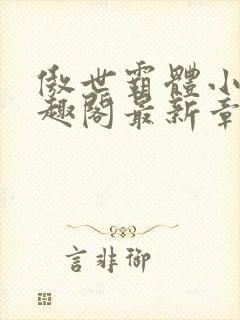 傲世霸體小
趣閣最新章
言非御